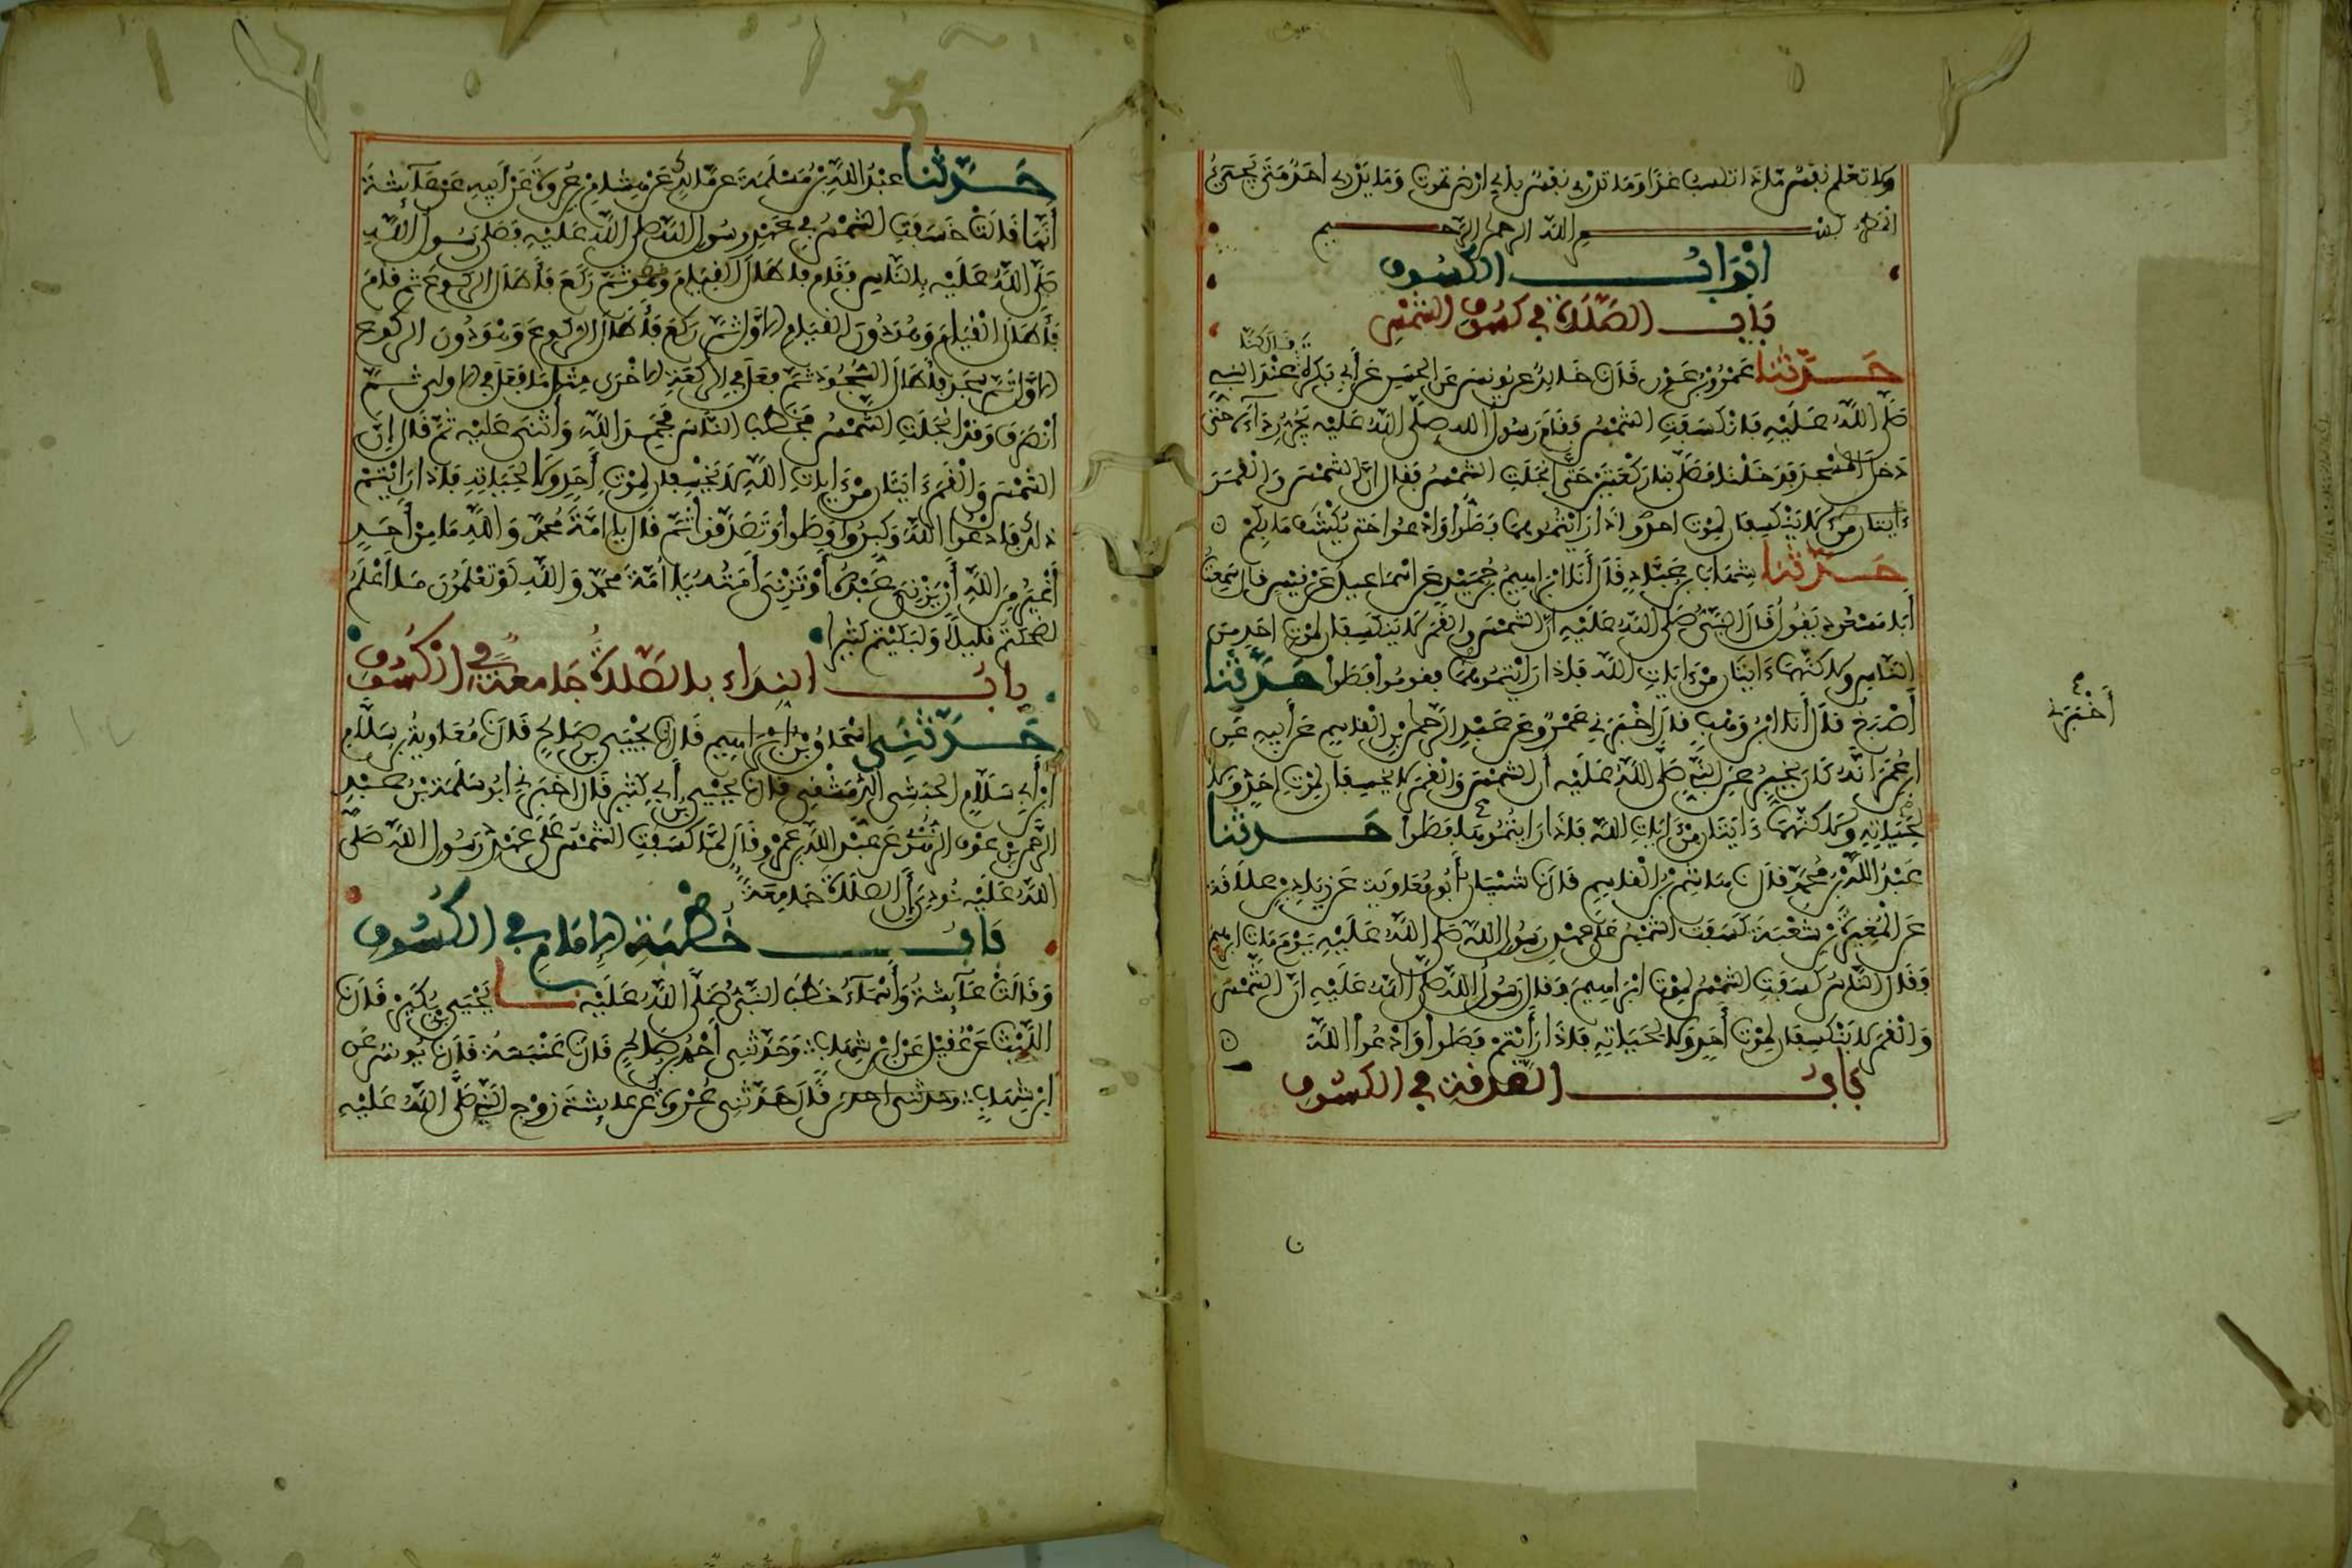 ولا تعلم نفس ماذا تكسب غدا وما تدري نفس بأي ارض تموت وما يدري احد متى يجيء
المطر بسم الله الرحمن الرحيم
ابواب الكسوف
باب الصلاة في كسوف الشمس
قال كنا
حدثنا عمرو بن عون قال نا خالد عن يونس عن الحسن عن أبي بكرة عند النبي
صلى الله عليه فانكسفت الشمس فقام رسول الله صلى الله عليه يجر رداءه حتى
دخل المسجد فدخلنا فصلى بنا ركعتين حتى انجلت الشمس فقال ان الشمس والقمر
ءايتان لا ينكسفان لموت احد واذا رأيتموهما فصلوا وادعوا حتى يكشف ما بكم
حدثنا شهاب بن عباد قال أنا ابراهيم بن حميد عن اسماعيل عن قيس قال سمعت
أبا مسعود يقول قال النبي صلى الله عليه ان الشمس والقمر لا ينكسفان لموت احد من
الناس ولاكنهما ءايتان من ءايات الله فاذا رأيتموهما فقوموا فصلوا حدثنا
أصبغ قال أنا ابن وهب قال اخبرني عمرو عن عبد الرحمن بن القاسم عن أبيه عن
ابن عمر انه كان يخبر عن النبي صلى الله عليه أن الشمس والقمر لا يخسفان لموت احد ولا
لحياته ولاكنهما ءايتان من ءايات الله فاذا رأيتموها فصلوا حدثنا
عبد الله بن محمد قال نا هاشم بن القاسم قال نا شيبان أبو معاوية عن زياد بن علاقة
عن المغيرة بن شعبة كسفت الشمس على عهد رسول الله صلى الله عليه يوم مات ابراهيم
وقال الناس كسفت الشمس لموت ابراهيم فقال رسول الله صلى الله عليه ان الشمس
والقمر لا ينكسفان لموت أحد ولا لحياته فاذا رأيتم فصلوا وادعوا الله
باب الصدقة في الكسوف
أخبرني
حدثنا عبد الله بن مسلمة عن مالك عن هشام بن عروة عن أبيه عن عائشة
أنها قالت خسفت الشمس في عهد رسول الله صلى الله عليه فصلى رسول الله
صلى الله عليه بالناس فقام فأطال القيام ثم ركع فأطال الركوع ثم قام
فأطال القيام وهو دون القيام الاول ثم ركع فأطال الركوع وهو دون الركوع
الاول ثم سجد فأطال السجود ثم فعل في الركعة الاخرى مثل ما فعل في الاولى ثم
انصرف وقد انجلت الشمس فخطب الناس فحمد الله وأثنى عليه ثم قال إن
الشمس والقمر ءايتان من ءايات الله لا يخسفان لموت أحد ولا لحياته فاذا رأيتم
ذلك فادعوا الله وكبروا وصلوا وتصدقوا ثم قال يا امة محمد والله ما من أحد
أغير من الله أن يزني عبده أو تزني أمته يا امة محمد والله لو تعلمون ما اعلم
لضحكتم قليلا ولبكيتم كثيرا
باب النداء بالصلاة جامعة في الكسوف
حدثني اسحاق بن ابراهيم قال نا يحيى بن صالح قال نا معاوية بن سلام
ابن أبي سلام الحبشي الدمشقي قال نا يحيى بن أبي كثير قال اخبرني ابو سلمة بن عبد
الرحمن بن عوف الزهري عن عبد الله بن عمرو قال لما كسفت الشمس على عهد رسول الله صلى
الله عليه نودي إن الصلاة جامعة
باب خطبة الإمام في الكسوف
وقالت عائشة وأسماء خطب النبي صلى الله عليه نا يحيى بن بكير قال نا
الليث عن عقيل عن ابن شهاب وحدثني أحمد بن صالح قال نا عنبسة قال نا يونس عن
ابن شهاب قال حدثني عروة عن عائشة زوج النبي صلى الله عليه